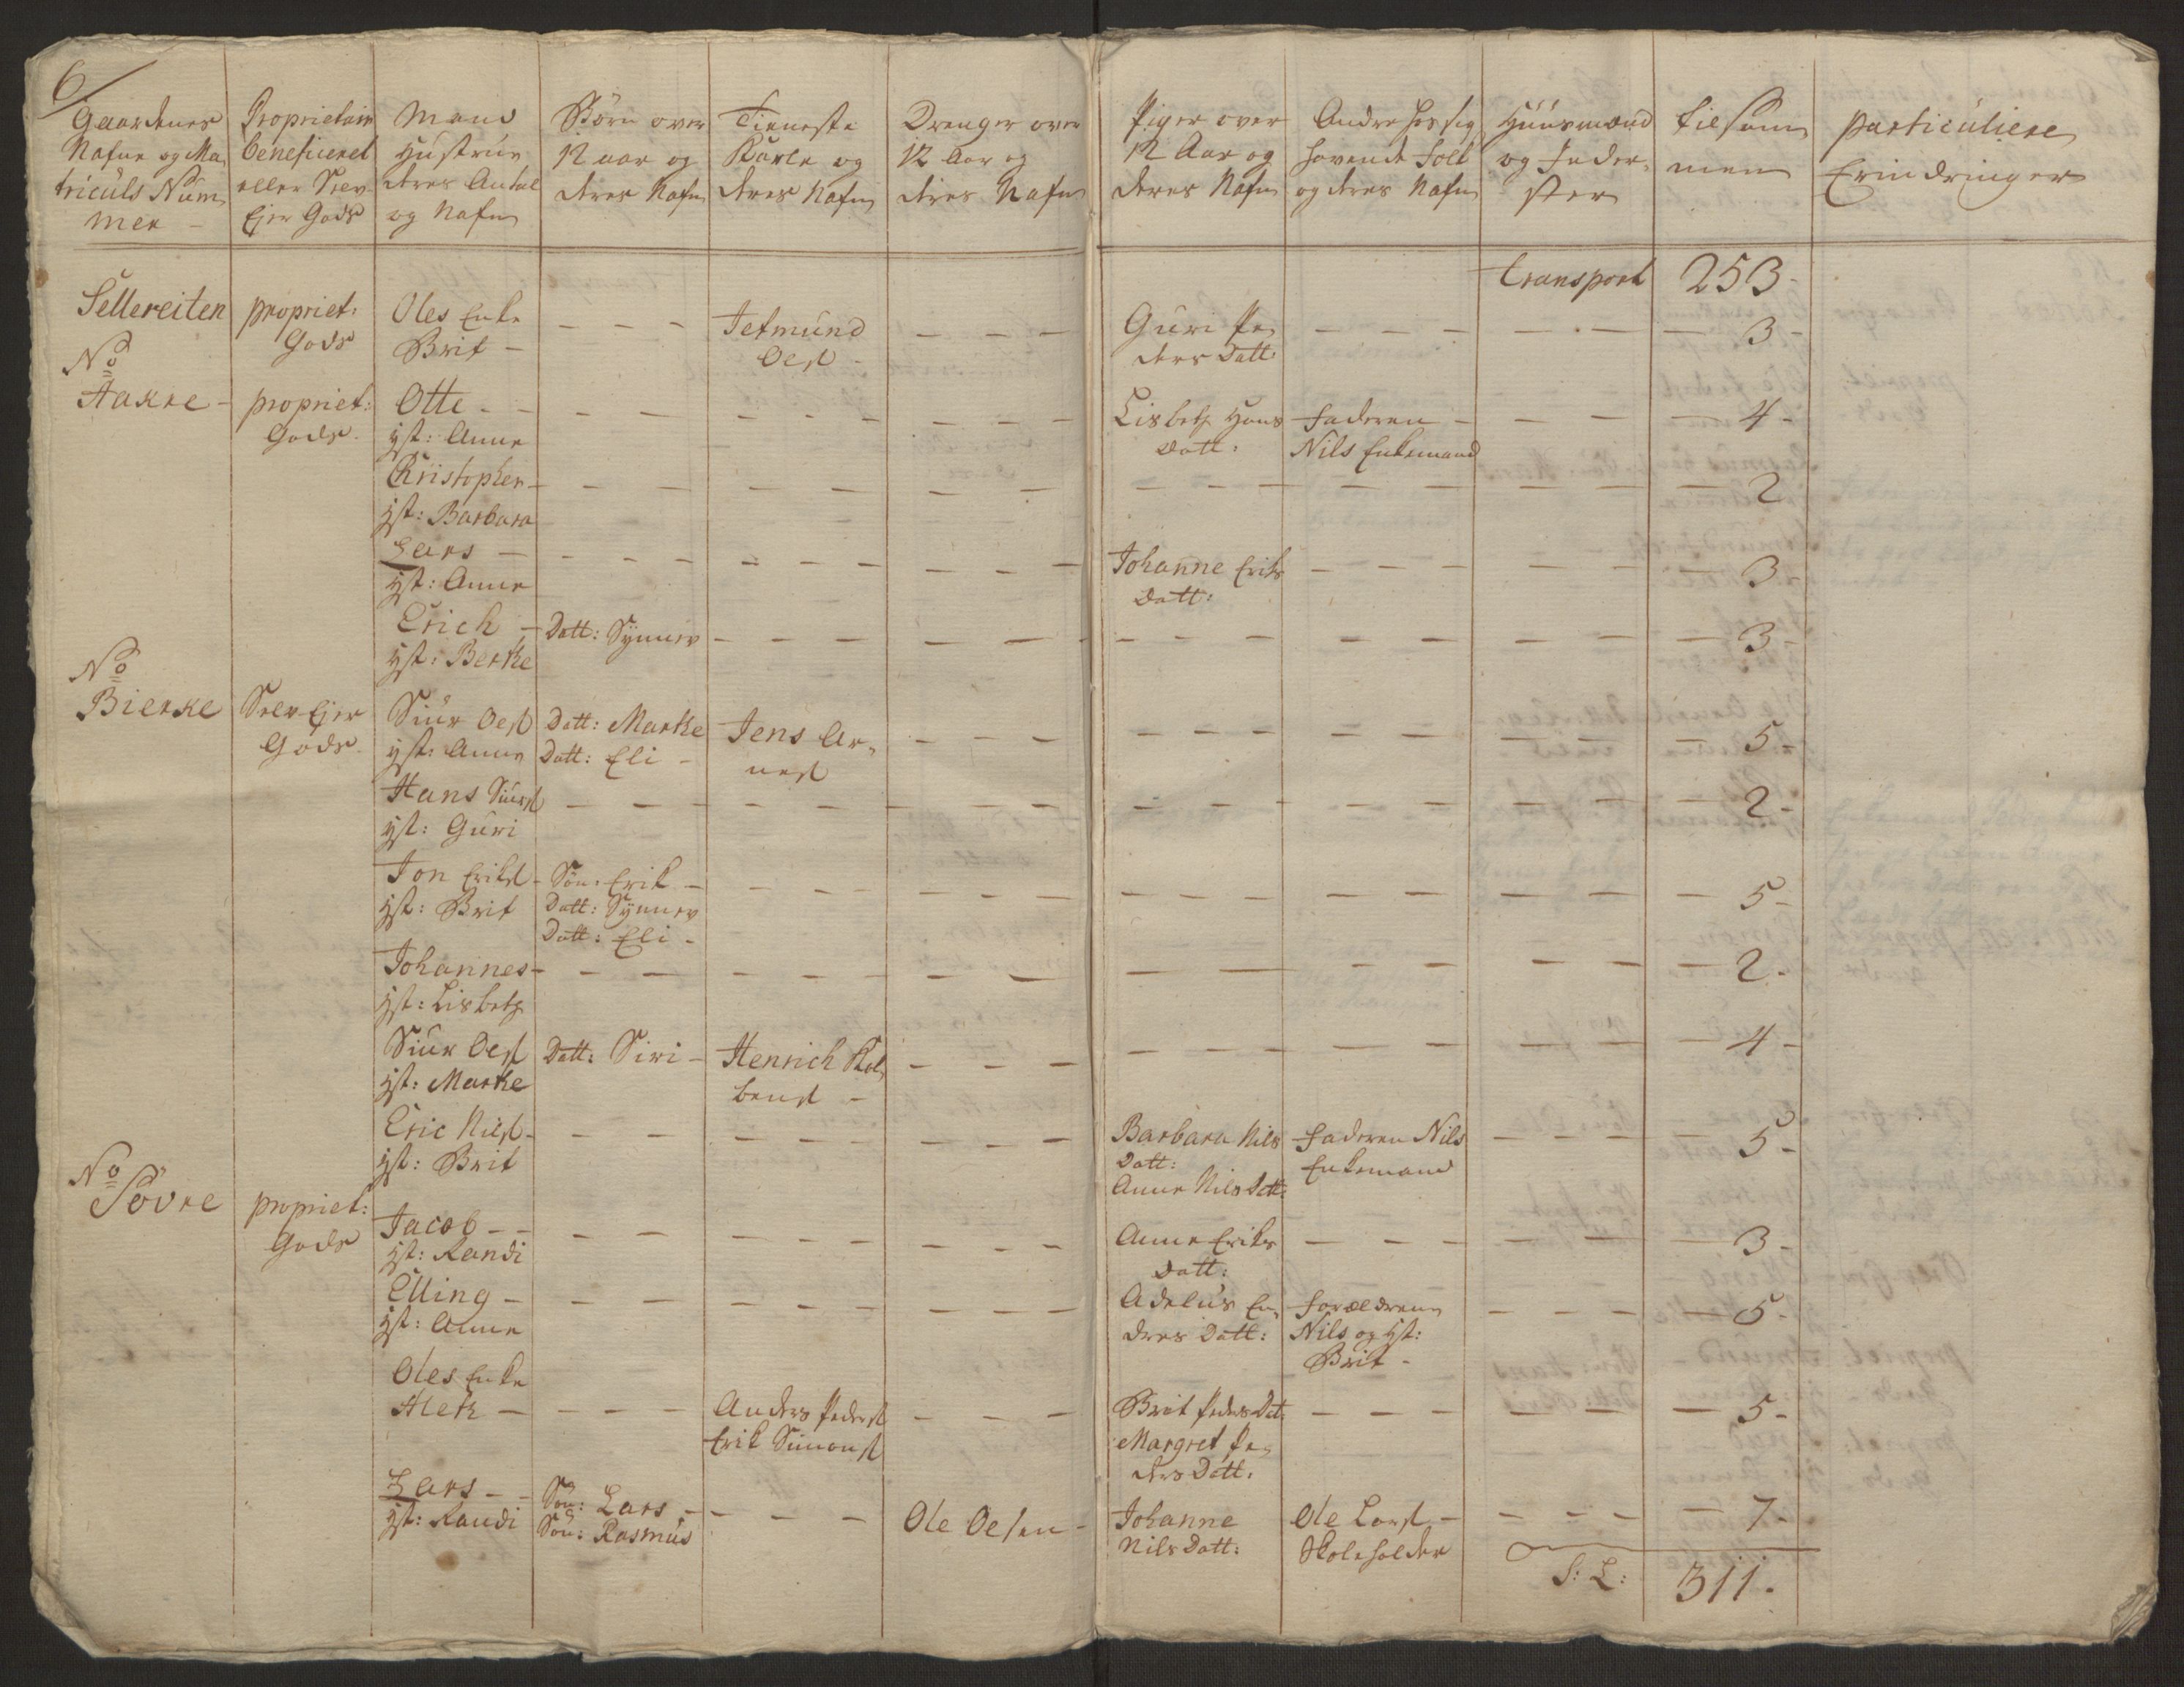 6/
Gaardenes Nafne og Ma,
triculs Num,
mer -
Proprietair
beneficeret
eller Selv
Ejer Gods
Mand
Hustrue
deres Antal
og Nafn
Börn over
12 aar og
deres Nafn
Tieneste
Karle og
deres Nafn
Drenger over
12 Aar og
deres Nafn
Piger over
12 Aar og
deres Nafn
Andre hos sig
havende folk
og deres Nafn
Huusmænd
og Inder,
ster
tilsam
men
particuliere
Erindringer
transport 253-
Sellereiten propriet: Gods
Oles Enke
Brit -
- - - Jetmund
Oesl -
- - - Guri Pe,
ders Datt:
- - - - - - 3-
No
Aakre - propriet:
Gods.
Otte - -
Hst: Anne
- - - - - - - - Lisbeth Hans
Datt:
Faderen -
Nils Enkemand
- - - 4 -
Christopher -
Hst: Barbara
- - - - - - - - - - - - - 2
Lars -
Hst: Anne
- - - - - - - - - Johanne Eriks
Datt:
- - - - - - 3-
Erich -
Hst: Berthe
Datt: Synnev - - - - - - - - - - - - 3-
No
Bierke Selv Ejer
Gods.
Siur Oesl
Hst: Anne
Datt: Marthe
Datt: Eli -
Jens Ar,
nesl
- - - - - - - - - - - 5-
Hans Siursl
Hst: Guri
- - - - - - - - - - - - - 2-
Jon Eriksl -
Hst: Brit
Sön: Erik -
Datt: Synnev
Datt: Eli -
- - - - - - - - - - - 5-
Johannes -
Hst: Lisbeth
- - - - - - - - - - - - 2-
Siur Oesl
Hst: Marthe
Datt: Siri - Henrich Kol,
bensl -
- - - - - - - - - - 4-
Eric Nilsl -
Hst: Brit
- - - - - - - - Barbara Nils
Datt:
Anne Nils Dtt:
Faderen Nils
Enkemand
- - - - 5-
No
Sövre propriet:
Gods
Jacob - -
Hst: Randi
- - - - - - - - Anne Eriks
Datt:
- - - - - - 3-
Elling -
Hst: Anne
- - - - - - - - Adelus En,
dres Datt:
Forældrene
Nils og Hst:
Brit -
- - - - 5-
Oles Enke
Aleth -
- - - Anders Pedersl
Erik Simonsl
- - - Brit Peders Dat
Margret Pe,
ders Datt:
- - - - - - 5-
Lars - -
Hst: Randi
Sön: Lars -
Sön: Rasmus
- - - Ole Oesen - Johanne
Nils Datt:
Ole Larsl -
Skoleholder
- - - - 7-
S: L: 311.